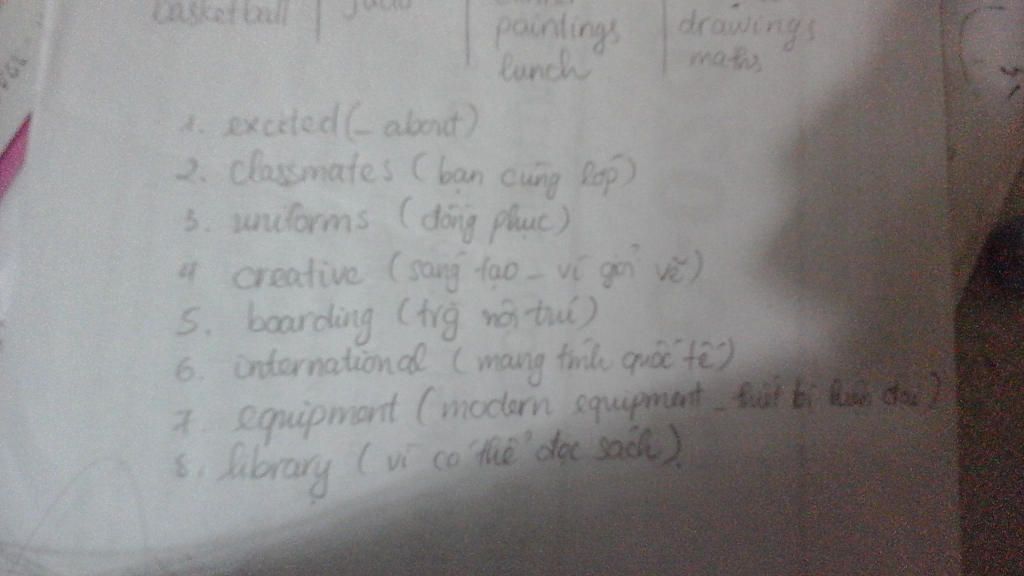 basketball | judo | paintings | drawings
lunch | maths
1. excited (_ about)
2. classmates (bạn cùng lớp)
3. uniforms (đồng phục)
4 creative (sáng tạo _ vì giỏi vẽ)
5. boarding (trg nội trú)
6. international (mang tính quốc tế)
7 equipment (modern equipment _ thiết bị hiện đại)
8. library (vì có thể đọc sách)